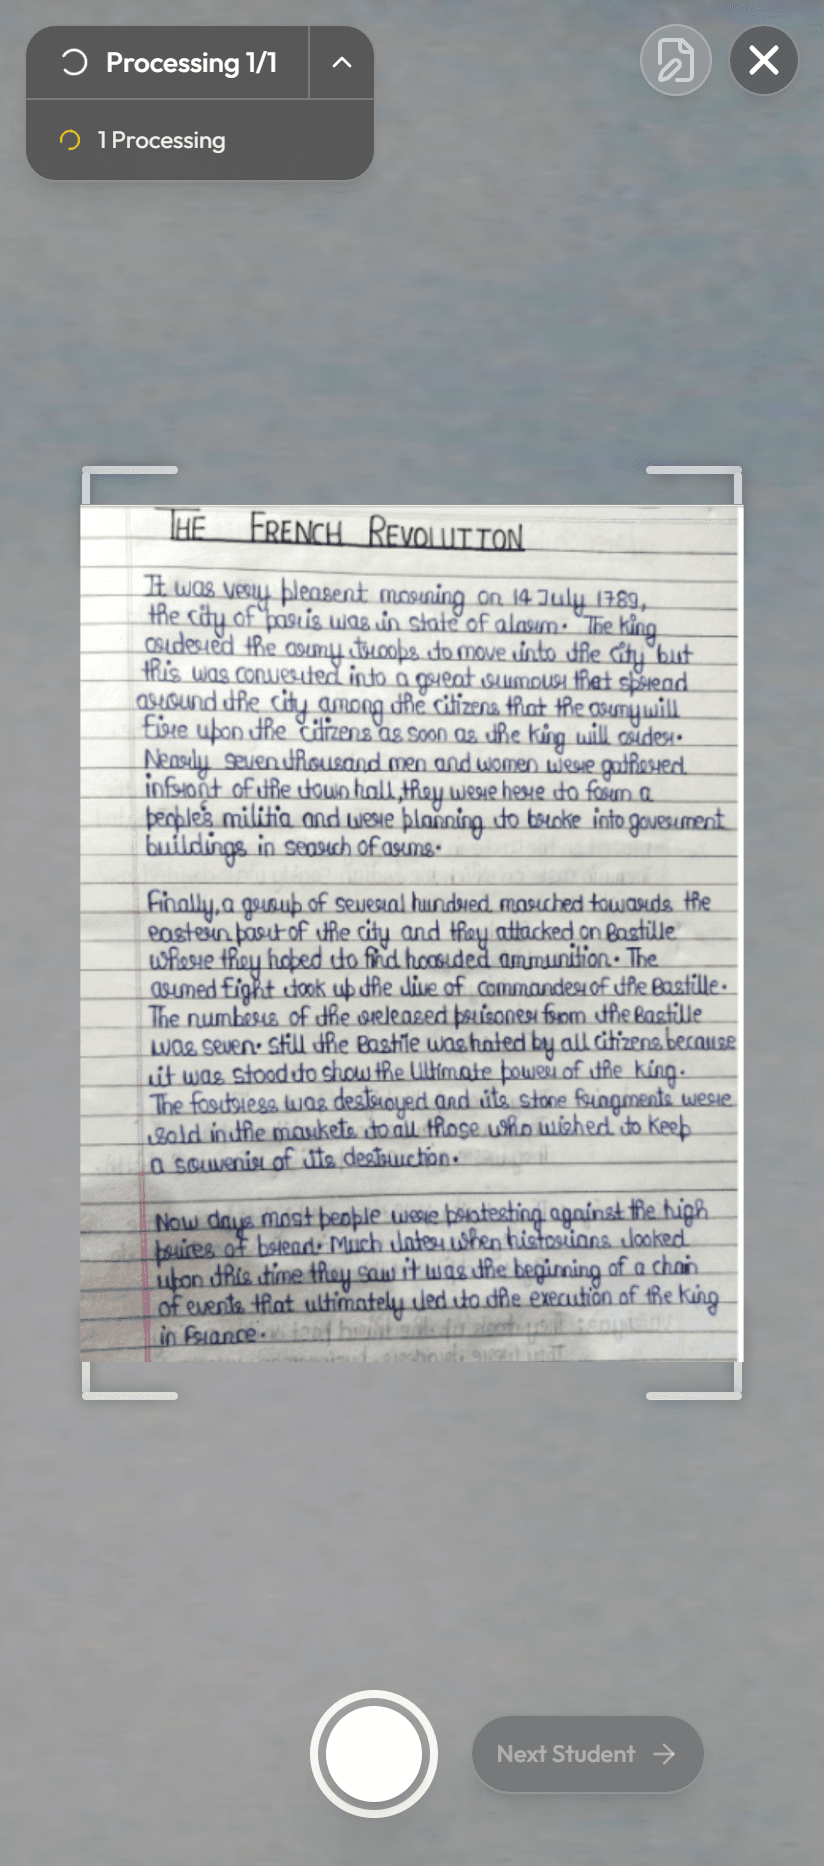 Processing 1/1
1 Processing
THE FRENCH REVOLUTION
It was very pleasent morning on 14 July 1789,
the city of paris was in state of alarm. The King
ordered the army troops to move into the city but
this was converted into a great rumour that spread
around the city among the citizens that the army will
fire upon the citizens as soon as the king will order.
Nearly seven thousand men and women were gathered
infront of the town hall, they were here to form a
people's militia and were planning to broke into goverment
buildings in search of arms.
Finally, a group of several hundred marched towards the
eastern part of the city and they attacked on Bastille
where they hoped to find hoarded ammunition. The
armed fight took up the live of commander of the Bastille.
The numbers of the released prisoner from the Bastille
was seven. Still the Bastile was hated by all citizens because
it was stood to show the Ultimate power of the king.
The fortress was destroyed and its stone fragments were
sold in the markets to all those who wished to keep
a souvenir of its destruction.
Now days most people were protesting against the high
prices of bread. Much later when historians looked
upon this time they saw it was the beginning of a chain
of events that ultimately led to the execution of the king
in France.
Next Student